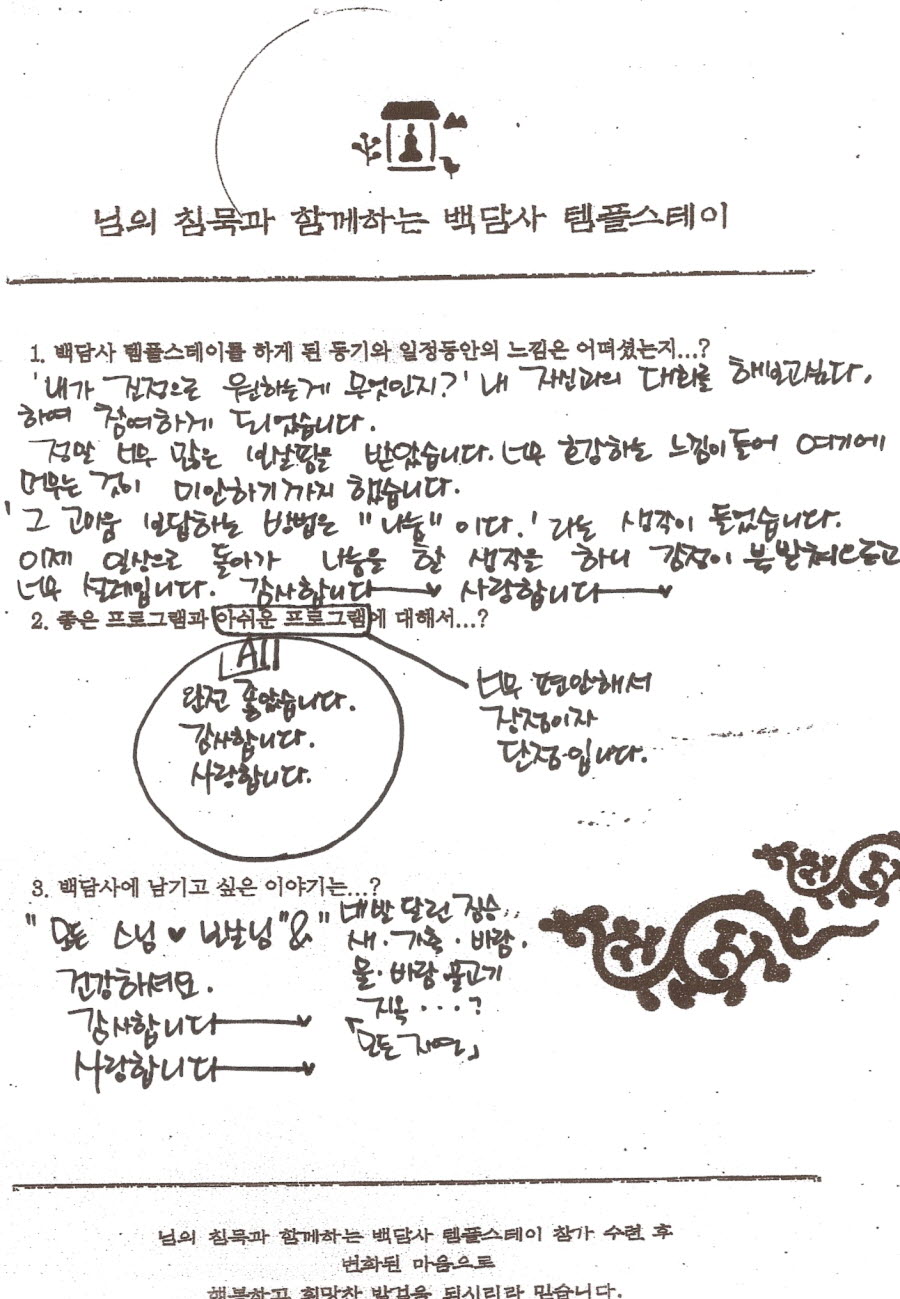 님의 침묵과 함께하는 백담사 템플스테이
1. 백담사 템플스테이를 하게 된 동기와 일정동안의 느낌은 어떠셨는지...?
'내가 진정으로 원하는게 무엇인지?' 내 자신과의 대화를 해보고싶다.
하여 참여하게 되었습니다.
정말 너무 많은 보살핌을 받았습니다. 너무 호강하는 느낌이 들어 여기에
머무는 것이 미안하기까지 했습니다.
'그 고마움 보답하는 방법은 "나눔" 이다.' 라는 생각이 들었습니다.
이제 일상으로 돌아가 나눔을 할 생각을 하니 감정이 북받쳐오르고
너무 설레입니다. 감사합니다 사랑합니다
2. 좋은 프로그램과 아쉬운 프로그램에 대해서...?
All
완전 좋았습니다.
감사합니다.
사랑합니다.
너무 편안해서
장점이자
단점입니다.
3. 백담사에 남기고 싶은 이야기는...?
"모든 스님 ♥ 보살님" & "네발 달린 짐승..
새·가축·바람.
물·바람 물고기
지옥 ...?
「모든 자연」
건강하셔요.
감사합니다
사랑합니다
님의 침묵과 함께하는 백담사 템플스테이 참가 수련 후
변화된 마음으로
행복하고 희망찬 발걸음 되시리라 믿습니다.